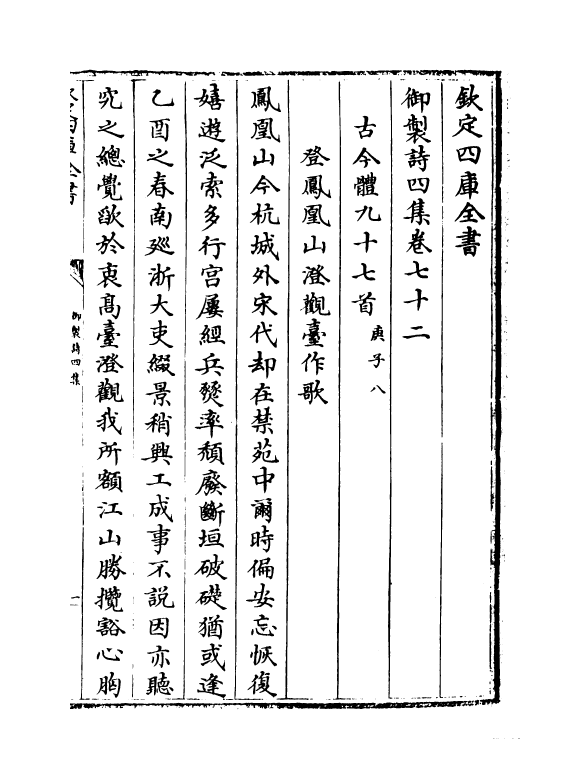 欽定四庫全書
御製詩四集卷七十二
古今體九十七首庚子八
登鳳凰山澄觀臺作歌
鳳凰山今杭城外宋代却在禁苑中爾時偏安忘恢復
嬉遊泛索多行宫屢經兵燹率頹廢斷垣破礎猶或逢
乙酉之春南廵浙大吏綴景稍興工成事不説因亦聽
究之總覺歉於衷髙臺澄觀我所額江山勝攬豁心胸
御製詩四集
一